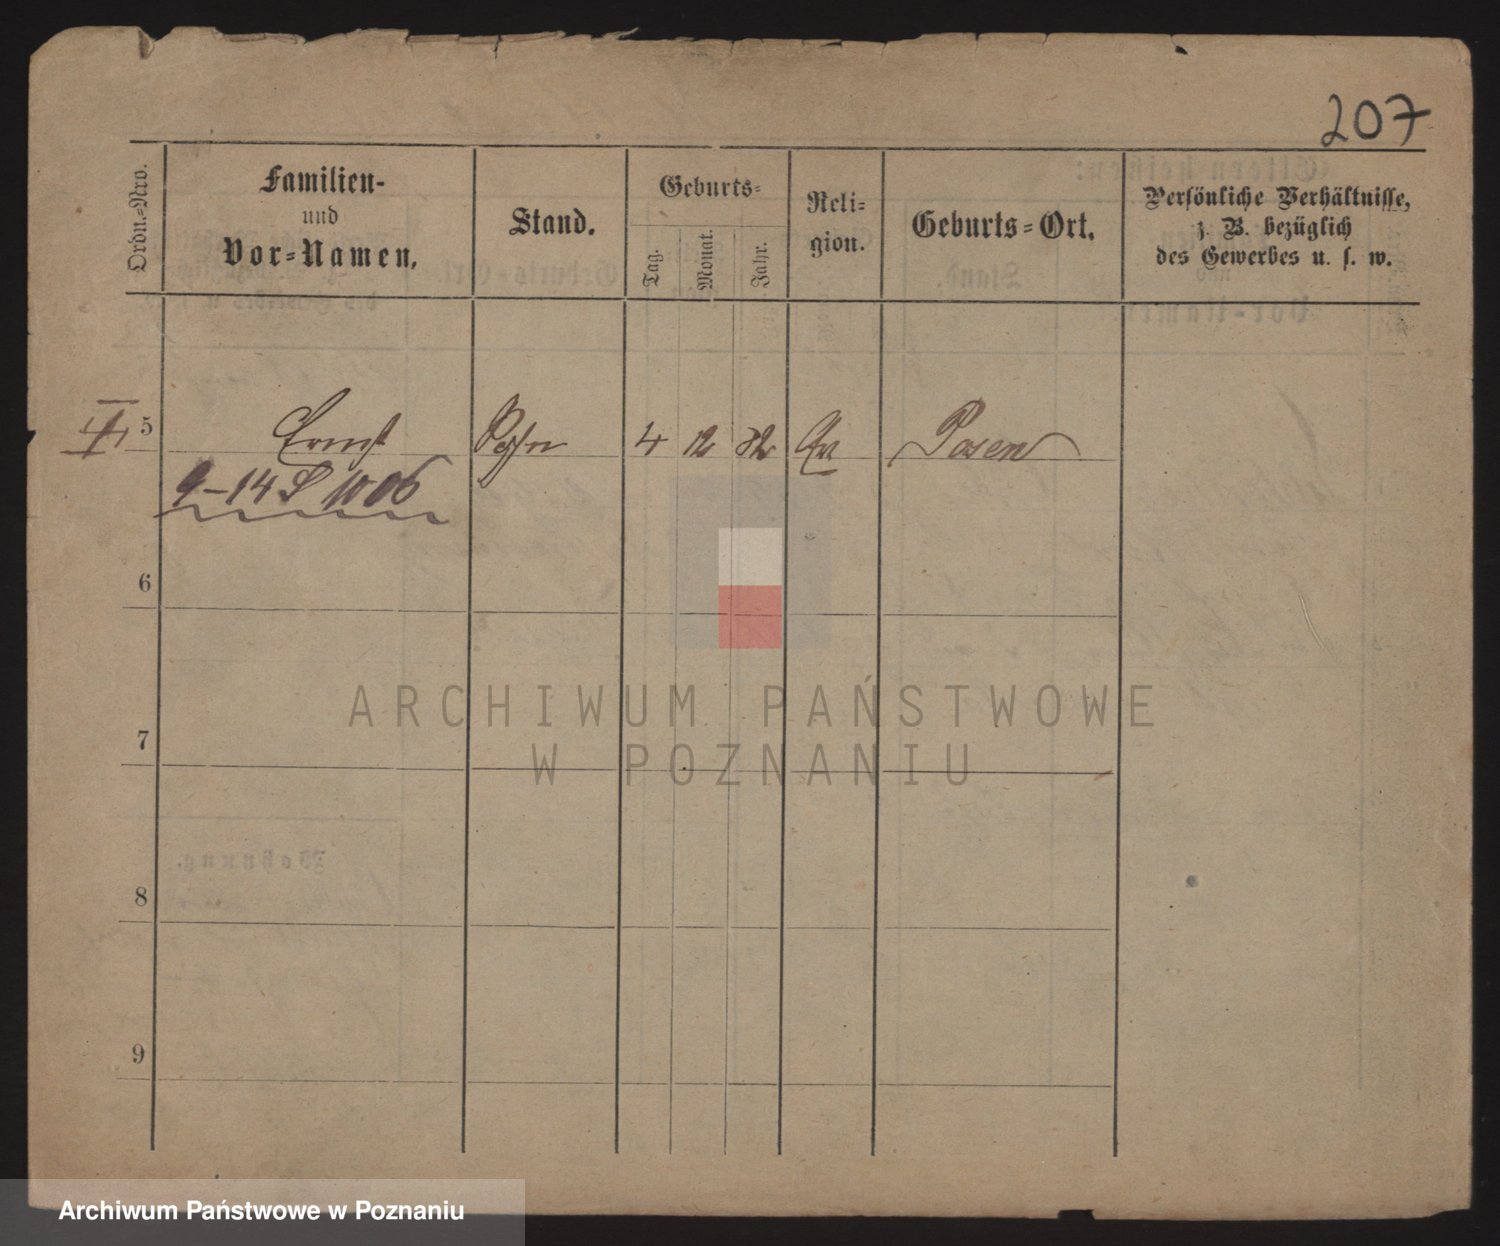 207
Ordn.=Nro.
Familien-
und
Vor=Namen.
Stand.
Geburts=
Tag.
Monat.
Jahr.
Reli=
gion.
Geburts=Ort.
Persönliche Verhältnisse,
z. B. bezüglich
des Gewerbes u. s. w.
5 Ernst Sohn 4 12 82 Ev Posen
9-14
6
7
8
9
ARCHIWUM PAŃSTWOWE
W POZNANIU
Archiwum Państwowe w Poznaniu